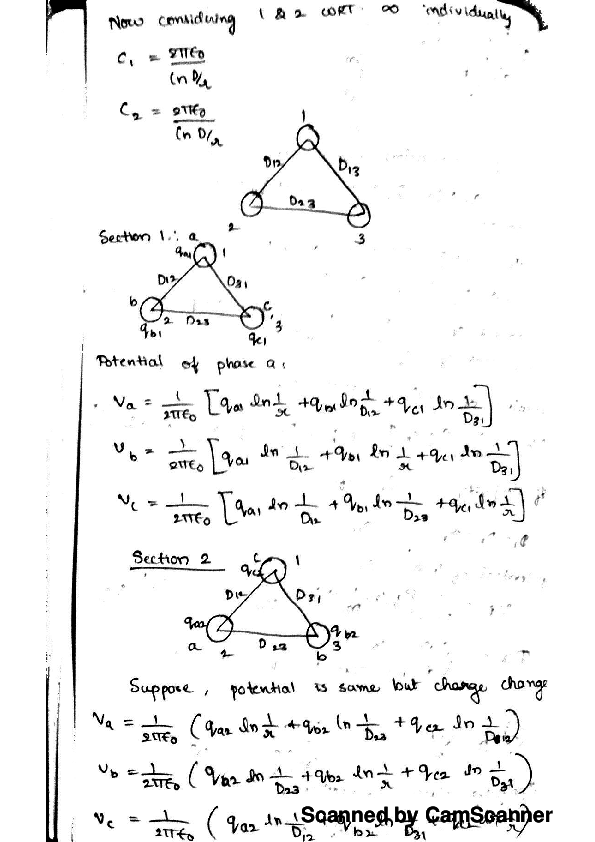 Now considering 1 & 2 WRT ∞ individually
C₁ = 2πε₀ / ln D/r
C₂ = 2πε₀ / ln D/r
1
D12 D13
D23
2
3
Section 1: a
qa1 1
D12 D31
b c
2 D23 3
qb1 qc1
Potential of phase a,
Va = 1/2πε₀ [qa1 ln 1/r + qb1 ln 1/D12 + qc1 ln 1/D31]
Vb = 1/2πε₀ [qa1 ln 1/D12 + qb1 ln 1/r + qc1 ln 1/D31]
Vc = 1/2πε₀ [qa1 ln 1/D12 + qb1 ln 1/D23 + qc1 ln 1/r]
Section 2
c 1
qc2
D12 D31
qa2 qb2
a 2 D23 b 3
Suppose, potential is same but change change
Va = 1/2πε₀ (qa2 ln 1/r + qb2 ln 1/D23 + qc2 ln 1/D12)
Vb = 1/2πε₀ (qa2 ln 1/D23 + qb2 ln 1/r + qc2 ln 1/D31)
Vc = 1/2πε₀ (qa2 ln 1/D12 qb2 D31 r)
Scanned by CamScanner